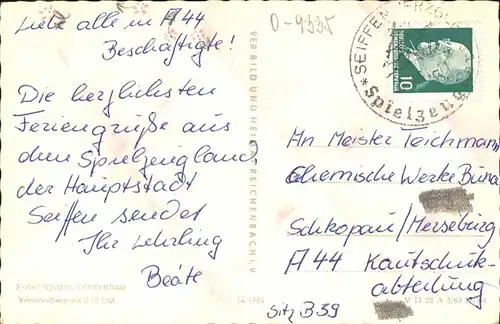 Liebe alle in A 44
Beschäftigte!
Die herzlichsten
Feriengrüße aus
dem Spielzeugland,
der Hauptstadt
Seiffen sendet
Ihr Lehrling
Beate
Foto: Spahn, Olbernhau
Verkaufspreis 0,15 DM
14 1784
VEB BILD UND HEIMAT REICHENBACH i. V
0-9335
SEIFFEN (ERZGEB
*Spielzeug
10
An Meister Teichmann
Chemische Werke Buna
Schkopau/Merseburg
A 44 Kautschuk-
abteilung
Sitz B 39